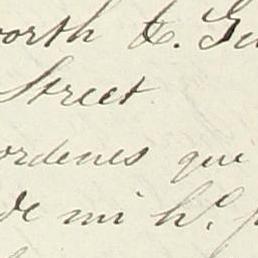 orth &. Ge
Street
ordenes que
de mi hº. p